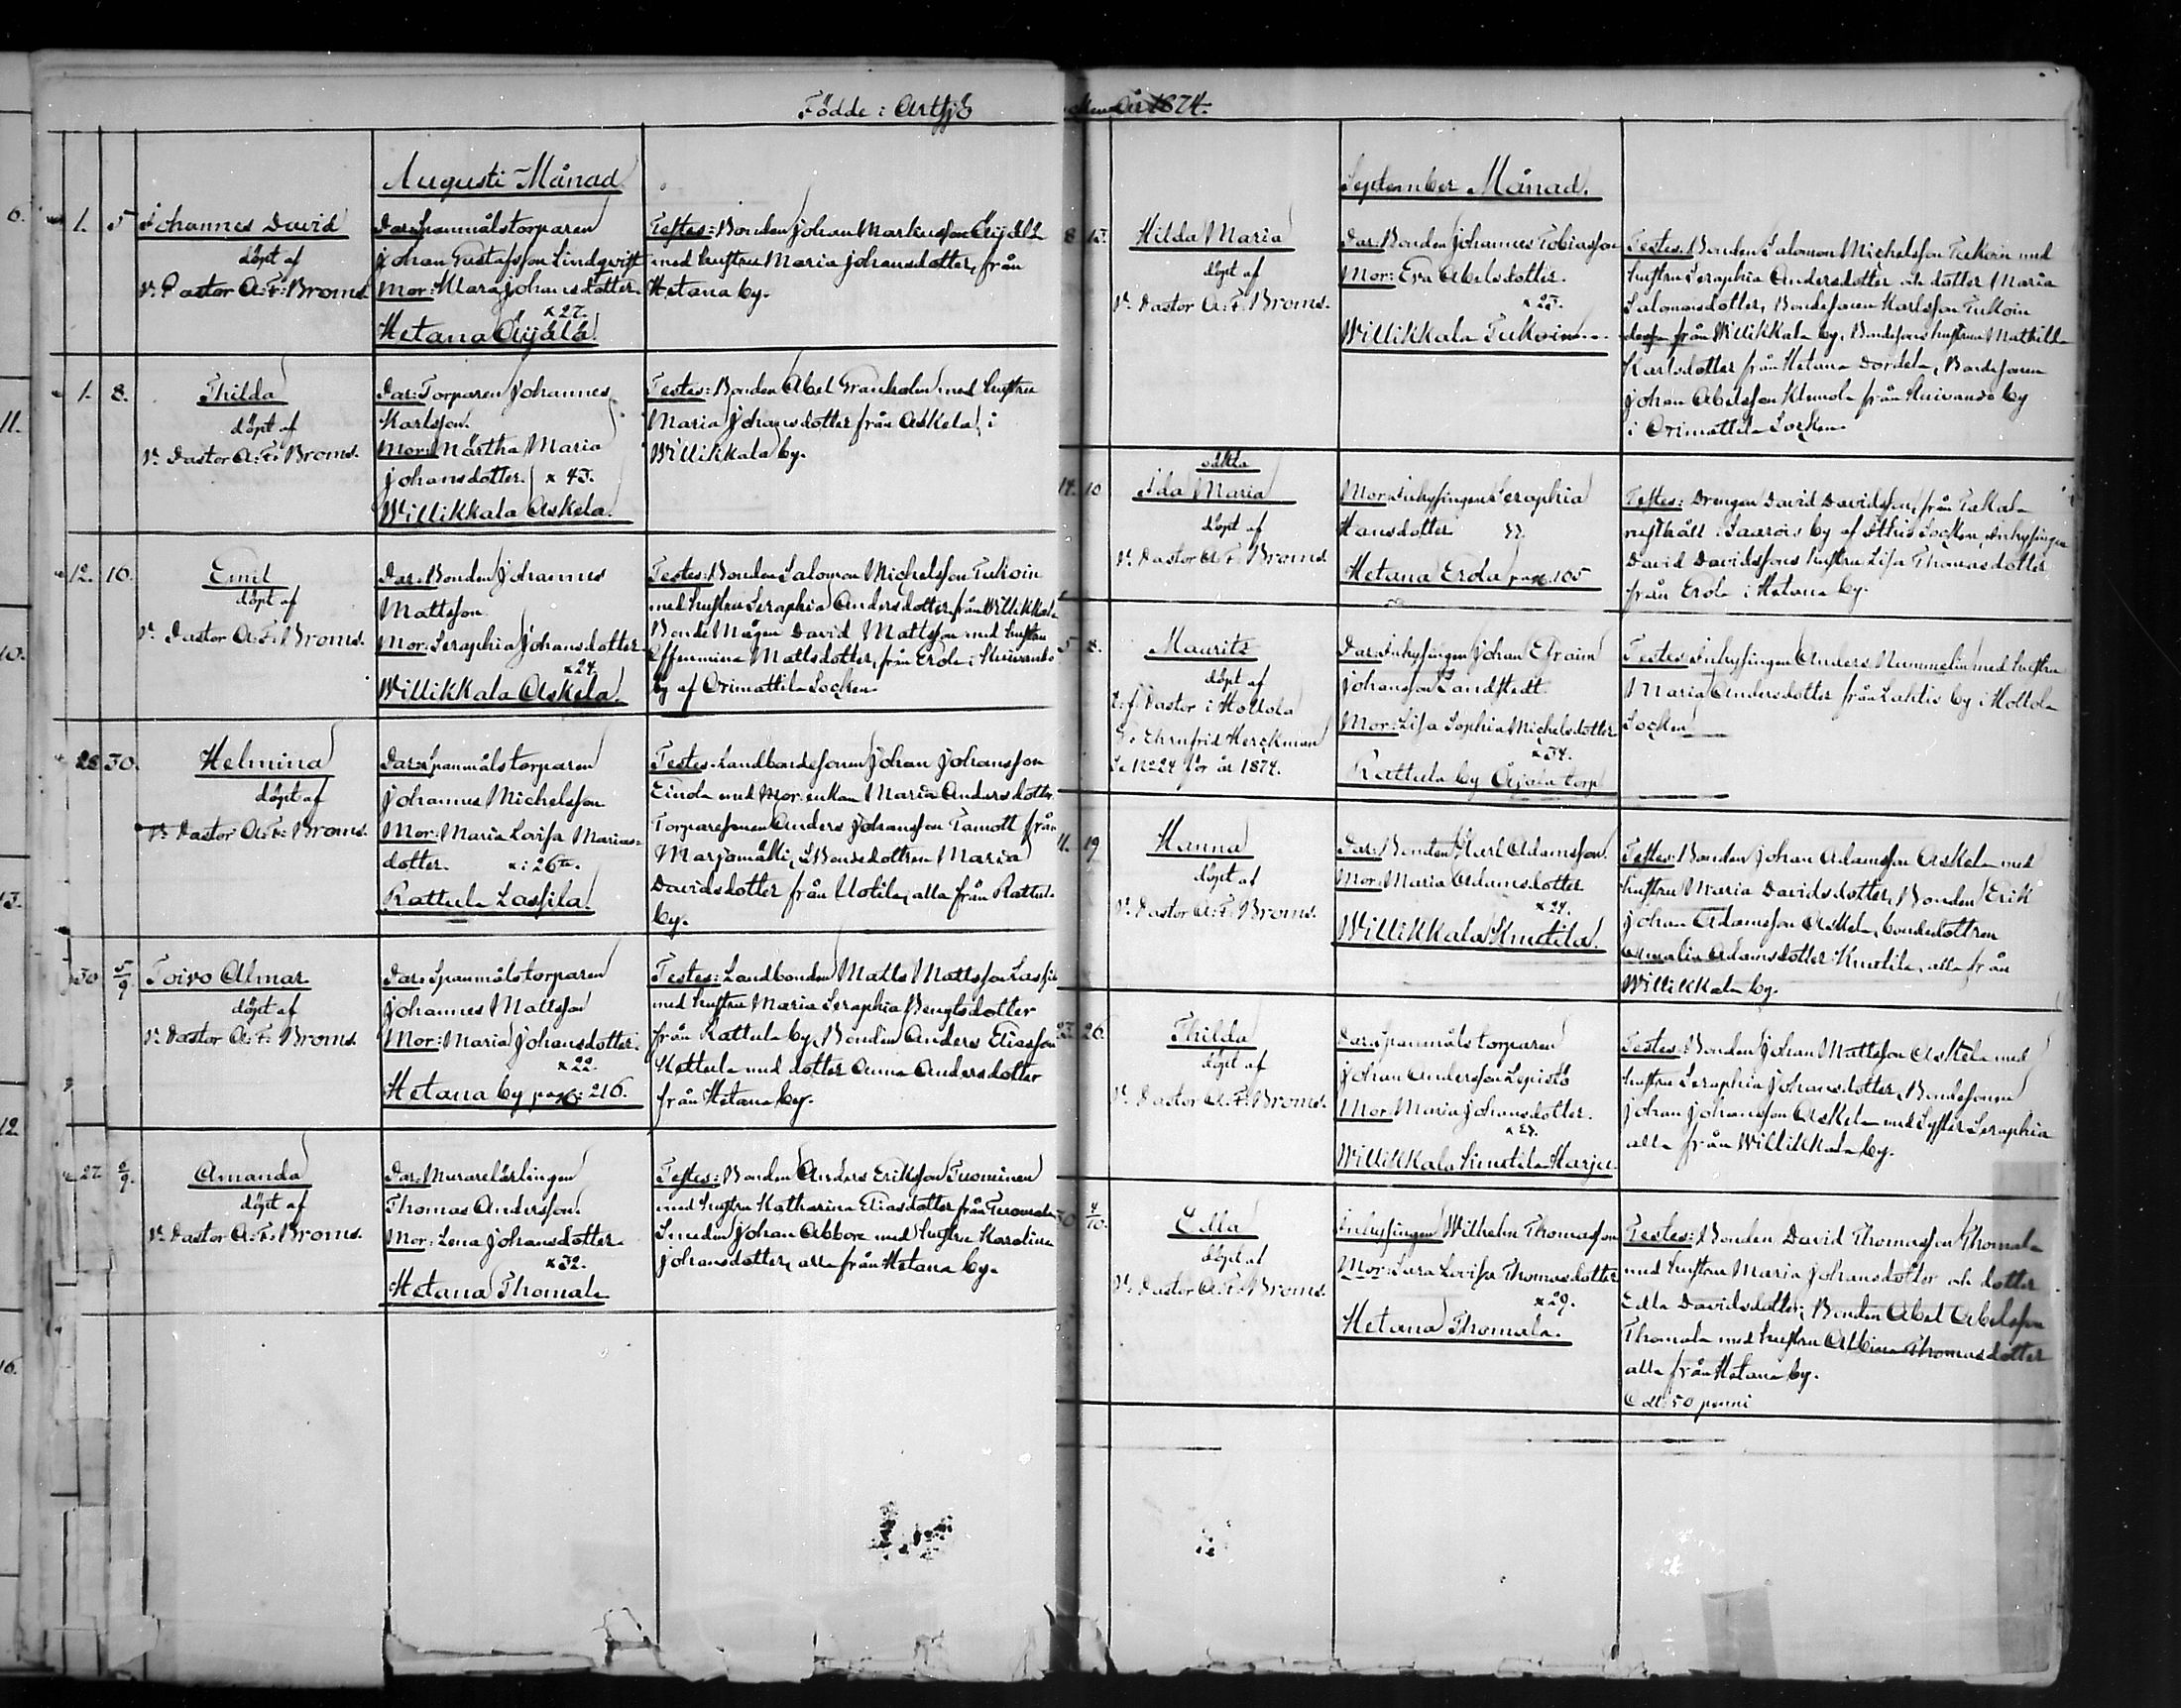 Födde i Artsjö
År 1874.
Augusti Månad
1. 5 Johannes David
döpt af
V. Pastor A. F. Broms
Far: Spanmålstorparen
Johan Gustafsson Lindqvist
Mor: Maria Johansdotter
x 27.
Hetana Äijälä
Testes: Bonden Johan Markusson Äijälä
med hustru Maria Johansdotter, från
Hetana by.
1. 8. Thilda
döpt af
V. Pastor A. F. Broms.
Far: Torparen Johannes
Karlsson.
Mor: Märtha Maria
Johansdotter. x 43.
Willikkala Askela.
Testes: Bonden Abel Granholm med hustru
Maria Johansdotter från Askela i
Willikkala by.
12. 16. Emil
döpt af
V. Pastor A. F. Broms.
Far: Bonden Johannes
Mattsson
Mor: Seraphia Johansdotter
x 24.
Willikkala Askela.
Testes: Bonden Salomon Michelsson Tukoin
med hustru Seraphia Andersdotter från Willikkala
Bonde Mågen David Mattsson med hustru
Mattsdotter, från Erola i
by af Orimattila Socken
28 30. Helmina
döpt af
V. Pastor A. F. Broms.
Far: Spanmålstorparen
Johannes Michelsson
Mor: Maria Lovisa Marias-
dotter. x: 26
Rattula Lassila
Testes: Landbondesonen Johan Johansson
Einola med Mor enkan Maria Andersdotter
Torparesonen Anders Johansson Tamott från
Marjamäki, Bondedottren Maria
Davidsdotter från Uotila, alla från Rattula
by.
30 5/9 Toivo Almar
döpt af
V. Pastor A. F. Broms.
Far: Spanmålstorparen
Johannes Mattsson
Mor: Maria Johansdotter.
x 22.
Hetana by pag: 216.
Testes: Landbonden Matts Mattsson Lassila
med hustru Maria Seraphia Bengtsdotter
från Rattula by, Bonden Anders Eliasson
Kettula med dotter Anna Andersdotter
från Hetana by.
27 6/9. Amanda
döpt af
V. Pastor A. F. Broms.
Far: Murarelärlingen
Thomas Andersson.
Mor: Lena Johansdotter
x 32.
Hetana Thomala
Testes: Bonden Anders Eriksson Tuominen
med hustru Katharina Eliasdotter från
Smeden Johan Abbore med hustru Karolina
Johansdotter, alla från Hetana by.
September Månad.
8 13. Hilda Maria
döpt af
V. Pastor A. F. Broms.
Far: Bonden Johannes Tobiasson
Mor: Eva Abelsdotter.
x 23.
Willikkala Tukoin
Testes: Bonden Salomon Michelsson Tukoin med
hustru Seraphia Andersdotter och dotter Maria
Salomonsdotter, Bondesonen Karlsson Tukoin
från Willikkala by, Bondesons hustrun Mathilda
Karlsdotter från Hetana Dordela, Bondesonen
Johan Abelsson från by
i Orimattila Socken
14. 10 oäkta
Ida Maria
döpt af
V. Pastor A. F. Broms
Mor: Inhysingen Seraphia
Hansdotter
Hetana Erola pag. 105
Testes: Drengen David Davidsson, från
rusthåll i by af Ithis Socken, Inhysingen
David Davidssons hustru Lisa Thomasdotter
från Erola i Hetana by.
5 8. Mauritz
döpt af
t. f. Pastor i Hollola
Ehrnfrid Herckman
No 224 för år 1874.
Far: Inhysingen Johan Efraim
Johansson Sandstedt.
Mor: Lisa Sophia Michelsdotter
x 34.
Rattula by Äijälä torp
Testes: Inhysingen Anders Nummelin med hustru
Maria Andersdotter från Lahtis by i Hollola
Socken
11. 19 Hanna
döpt af
V. Pastor A. F. Broms.
Far: Bonden Karl Adamsson.
Mor: Maria Adamsdotter
x 24.
Willikkala Knutila.
Testes: Bonden Johan Adamsson Askela med
hustru Maria Davidsdotter, Bonden Erik
Johan Adamsson Askela, bondedottren
Amalia Adamsdotter Knutila, alla från
Willikkala by.
23. 26. Thilda
döpt af
V. Pastor A. F. Broms.
Far: Spanmålstorparen
Johan Andersson Lepistö
Mor: Maria Johansdotter.
Willikkala Knutila Harju.
Testes: Bonden Johan Mattsson Askela med
hustru Seraphia Johansdotter, Bondesonen
Johan Johansson Askela med syster Seraphia
alla från Willikkala by.
30 4/10. Edla
döpt af
V. Pastor A. F. Broms.
Inhysingen Wilhelm Thomasson
Mor: Sara Lovisa Thomasdotter
x 29.
Hetana Thomala.
Testes: Bonden David Thomasson Thomala
med hustru Maria Johansdotter och dotter
Edla Davidsdotter; Bonden Abel Abelsson
Thomala med hustru Albina Thomasdotter
alla från Hetana by.
50 penni